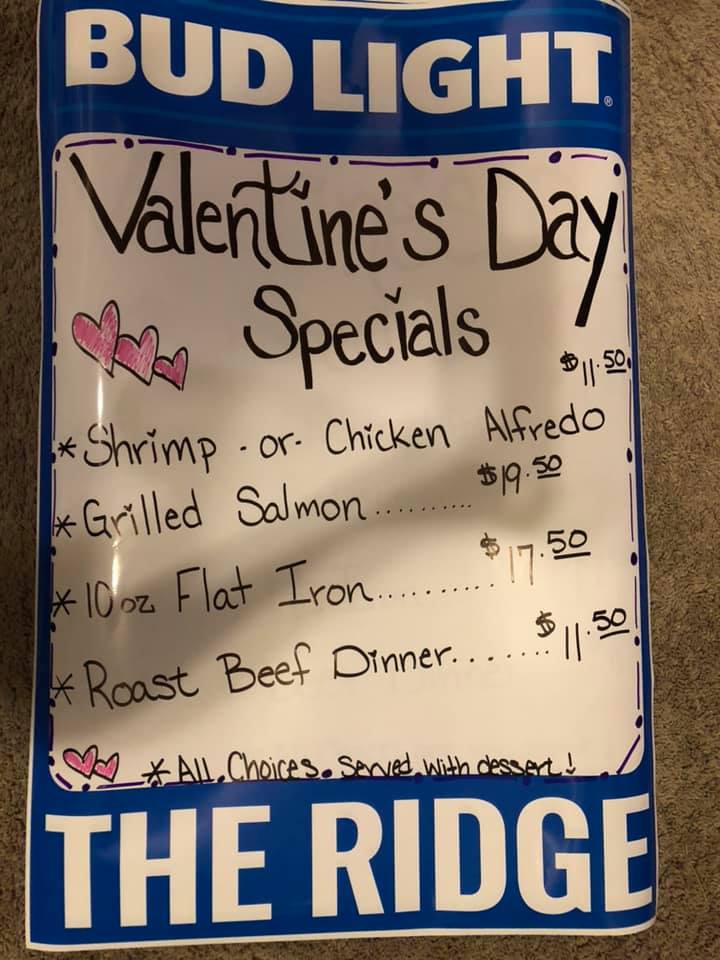 BUD LIGHT®
Valentine's Day
Specials
$11.50
* Shrimp - or - Chicken Alfredo
* Grilled Salmon .......... $19.50
* 10 oz Flat Iron........... $17.50
* Roast Beef Dinner........ $11.50
* All Choices Served With dessert!
THE RIDGE